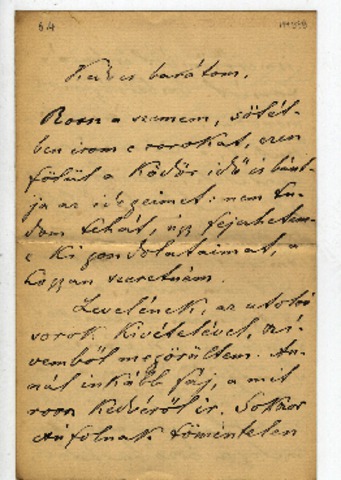 64
Kedves barátom,
Rossz a szemem, sötét-
ben irom e sorokat, ezen
fölül a ködös idő is bánt-
ja az idegeimet: nem tu-
dom tehát, úgy fejezhetem-
e ki gondolataimat, a
hogyan szeretném.
Levelének, az utolsó
sorok kivételével, szi-
vemből megörültem. An-
nál inkább fáj, a mit
rossz kedvéről ir. Sokszor
folnak töméntelen